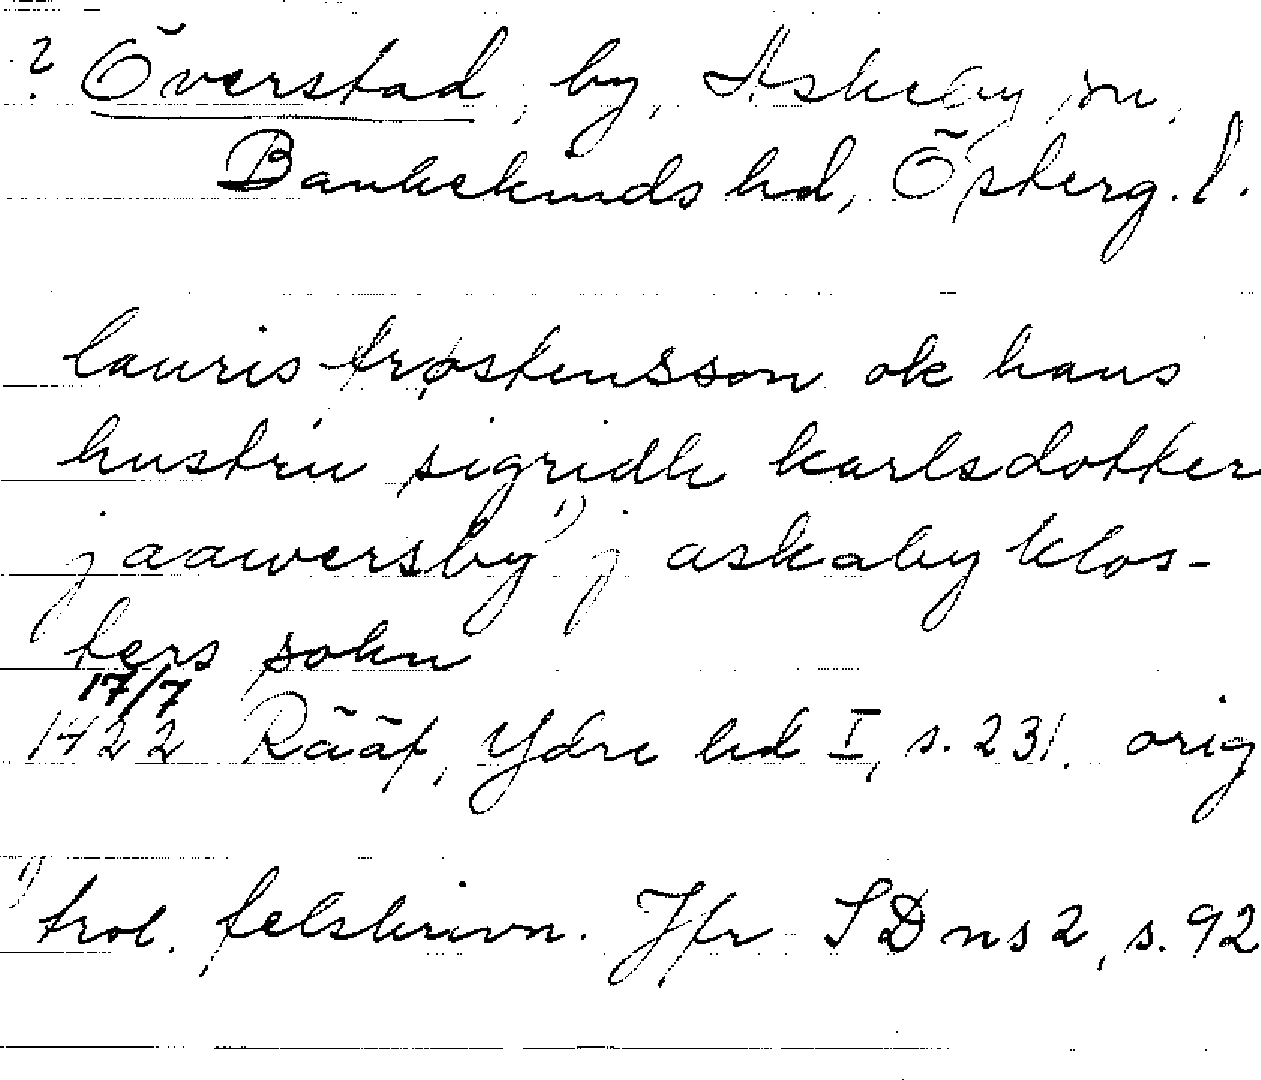 ? Överstad, by, Askeby sn,
Bankekinds hd, Österg. l.
lauris trøstensson ok hans
hustru sigridh karlsdotter
j aawersby 1) j askaby klos-
ters sokn
17/7
1422 Rääf, Ydre hd I, s. 231. orig
1) trol. felskrivn. Jfr SD ns 2, s. 92